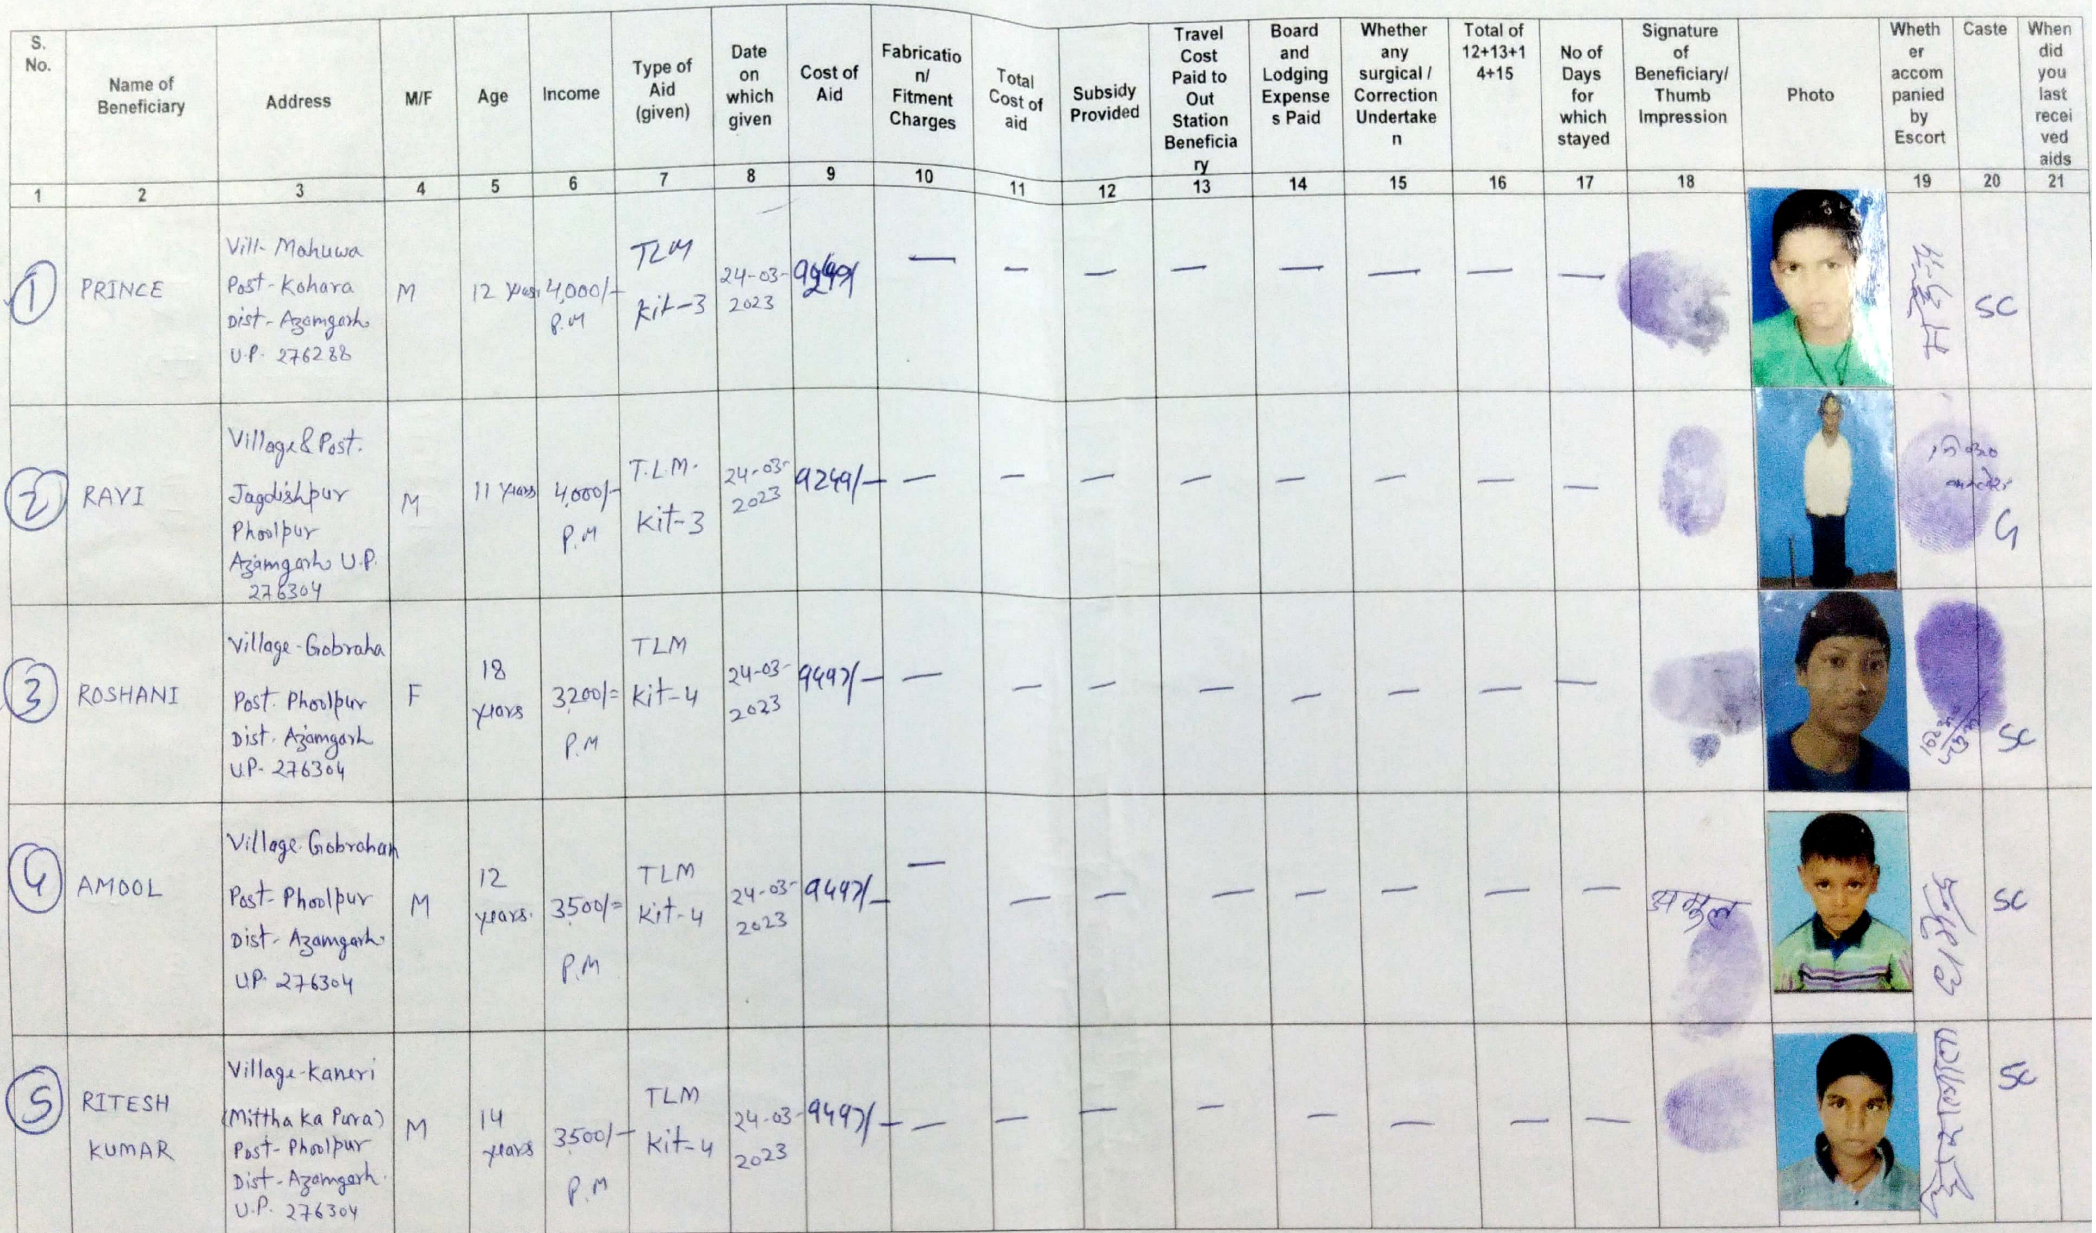 S.
No.
Name of
Beneficiary
Address
M/F
Age
Income
Type of
Aid
(given)
Date
on
which
given
Cost of
Aid
Fabricatio
n/
Fitment
Charges
Total
Cost of
aid
Subsidy
Provided
Travel
Cost
Paid to
Out
Station
Beneficia
ry
Board
and
Lodging
Expense
s Paid
Whether
any
surgical /
Correction
Undertake
n
Total of
12+13+1
4+15
No of
Days
for
which
stayed
Signature
of
Beneficiary/
Thumb
Impression
Photo
Wheth
er
accom
panied
by
Escort
Caste
When
did
you
last
recei
ved
aids
1 2 3 4 5 6 7 8 9 10 11 12 13 14 15 16 17 18 19 20 21
1
PRINCE
Vill- Mahuwa
Post- Kohara
Dist- Azamgarh
U.P. 276288
M
12 years
4,000/-
P.M
TLM
Kit-3
24-03-
2023
—
—
—
—
—
—
—
—
SC
2
RAVI
Village & Post.
Jagdishpur
Phoolpur
Azamgarh U.P.
276304
M
11 years
4,000/-
P.M
T.L.M.
Kit-3
24-03-
2023
9249/-
—
—
—
—
—
—
—
—
G
3
ROSHANI
Village-Gobraha
Post. Phoolpur
Dist. Azamgarh
U.P- 276304
F
18
years
3200/=
P.M
TLM
Kit-4
24-03-
2023
9497/-
—
—
—
—
—
—
—
—
SC
4
AMOOL
Village. Gobrahan
Post- Phoolpur
Dist- Azamgarh
U.P. 276304
M
12
years.
3500/=
P.M
TLM
Kit-4
24-03-
2023
9497/-
—
—
—
—
—
—
—
—
अमूल
SC
5
RITESH
KUMAR
Village-Kaneri
(Mittha Ka Pura)
Post- Phoolpur
Dist- Azamgarh.
U.P. 276304
M
14
years
3500/-
P.M
TLM
Kit-4
24-03-
2023
9497/-
—
—
—
—
—
—
—
—
SC